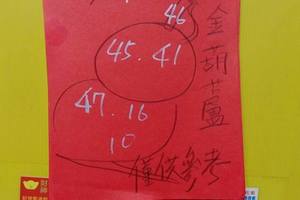 46
45.41
47.16
10
金葫蘆
僅供參考